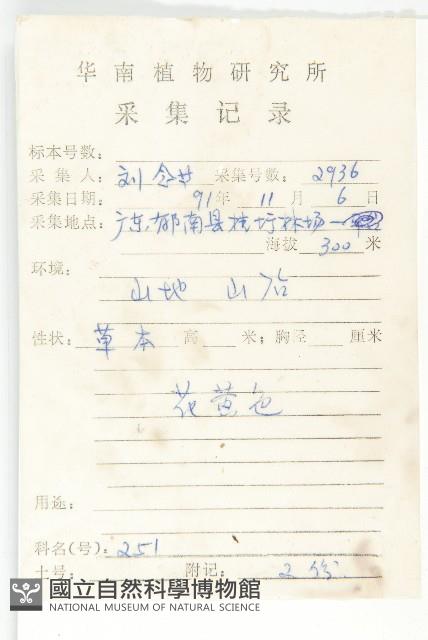 华南植物研究所
采集记录
标本号数:
采集人: 刘念 采集号数: 2936
采集日期: 91年 11月 6日
采集地点: 广东郁南县桂圩林场
海拔 300 米
环境:
山地 山谷
性状: 草本 高 米; 胸径 厘米
花黄色
用途:
科名(号): 251
土号: 附记: 2份
國立自然科學博物館
NATIONAL MUSEUM OF NATURAL SCIENCE